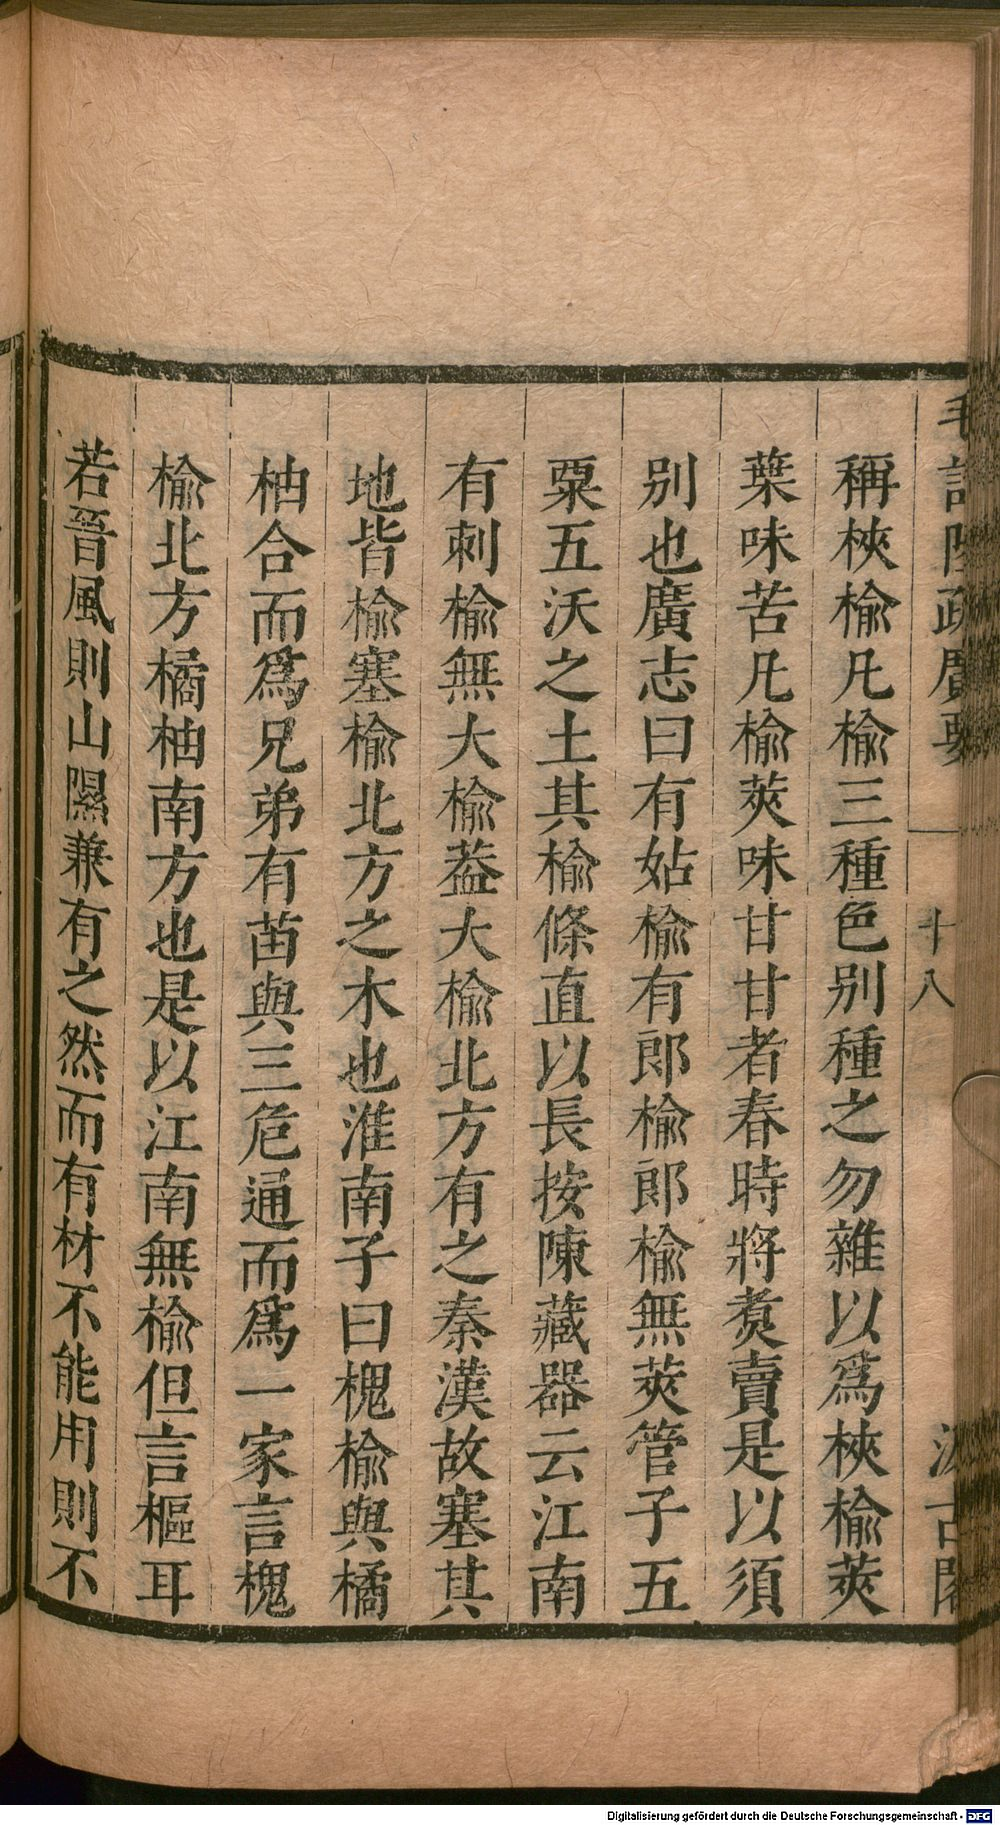 毛詩陸疏廣要
十八
汲古閣
稱梜榆凡榆三種色别種之勿雜以爲梜榆莢
葉味苦凡榆莢味甘甘者春時將煑賣是以須
别也廣志曰有姑榆有郎榆郎榆無莢管子五
粟五沃之土其榆條直以長按陳藏器云江南
有刺榆無大榆葢大榆北方有之秦漢故塞其
地皆榆塞榆北方之木也淮南子曰槐榆與橘
柚合而爲兄弟有苗與三危通而爲一家言槐
榆北方橘柚南方也是以江南無榆但言樞耳
若晉風則山隰兼有之然而有材不能用則不
Digitalisierung gefördert durch die Deutsche Forschungsgemeinschaft - DFG